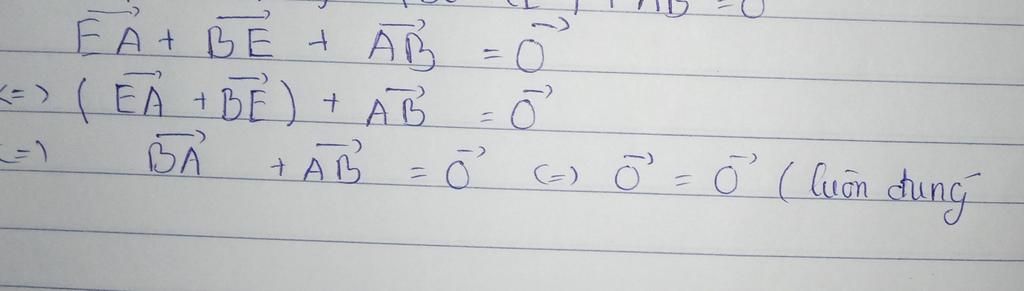 AB = 0
$\overrightarrow{EA} + \overrightarrow{BE} + \overrightarrow{AB} = \vec{0}$
<=> $(\overrightarrow{EA} + \overrightarrow{BE}) + \overrightarrow{AB} = \vec{0}$
<=> $\overrightarrow{BA} + \overrightarrow{AB} = \vec{0}$ <=> $\vec{0} = \vec{0}$ (luôn đung